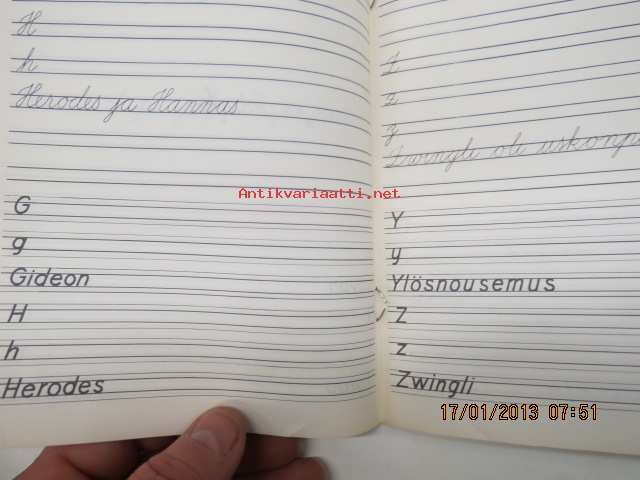 H
h
Herodes ja Hannas
G
g
Gideon
H
h
Herodes
Z
z
z
Zwingli oli uskonp
Y
y
Ylösnousemus
Z
z
Zwingli
Antikvariaatti.net
17/01/2013 07:51